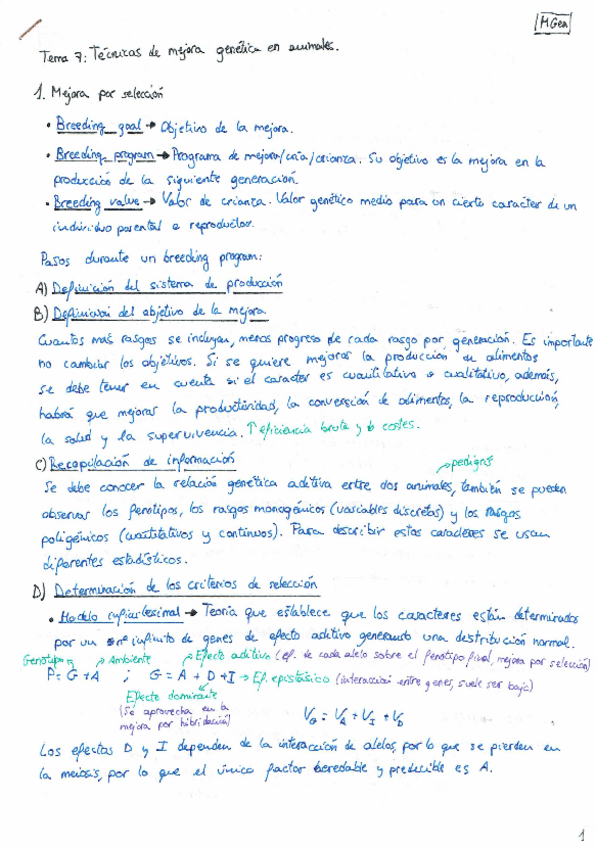 MGen
Tema 7: Técnicas de mejora genética en animales.
1. Mejora por selección
• Breeding goal → Objetivo de la mejora.
• Breeding program → Programa de mejora/cría/crianza. Su objetivo es la mejora en la
producción de la siguiente generación.
• Breeding value → Valor de crianza. Valor genético medio para un cierto caracter de un
individuo parental o reproductor.
Pasos durante un breeding program:
A) Definición del sistema de producción
B) Definición del objetivo de la mejora
Cuantos más rasgos se incluyan, menos progreso de cada rasgo por generación. Es importante
no cambiar los objetivos. Si se quiere mejorar la producción en alimentos
se debe tener en cuenta si el caracter es cuantitativo o cualitativo, además,
habrá que mejorar la productividad, la conversión de alimentos, la reproducción,
la salud y la supervivencia. ↑ eficiencia bruta y ↓ costes.
C) Recopilación de información
→ pedigrí
Se debe conocer la relación genética aditiva entre dos animales, también se pueden
observar los fenotipos, los rasgos monogénicos (variables discretas) y los rasgos
poligénicos (cuantitativos y continuos). Para describir estos caracteres se usan
diferentes estadísticos.
D) Determinación de los criterios de selección
• Modelo infinitesimal → Teoría que establece que los caracteres están determinados
por un nº infinito de genes de efecto aditivo generando una distribución normal.
Genotipo Ambiente Efecto aditivo (ef. de cada alelo sobre el fenotipo final, mejora por selección)
P = G + A ; G = A + D + I → Ef. epistático (interacción entre genes, suele ser baja)
Efecto dominante
(Se aprovecha en la
mejora por hibridación)
V_G = V_A + V_I + V_D
Los efectos D y I dependen de la interacción de alelos, por lo que se pierden en
la meiosis, por lo que el único factor heredable y predecible es A.
1